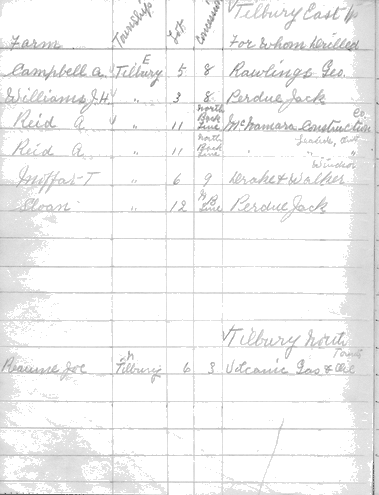 Tilbury East Tp
Farm Township Lot Concession For Whom Drilled
Campbell A. Tilbury E 5 8 Rawlings Geo.
Williams J.H. " 3 8 Perdue Jack
Reid A " 11 North Back Line McNamara Construction Co.
Reid A " 11 North Back Line " " "
Windsor
Moffat T " 6 9 Drake & Walker
Sloan " 12 N B Line Perdue Jack
Tilbury North
Reaume Joe Tilbury N 6 3 Volcanic Gas & Oil